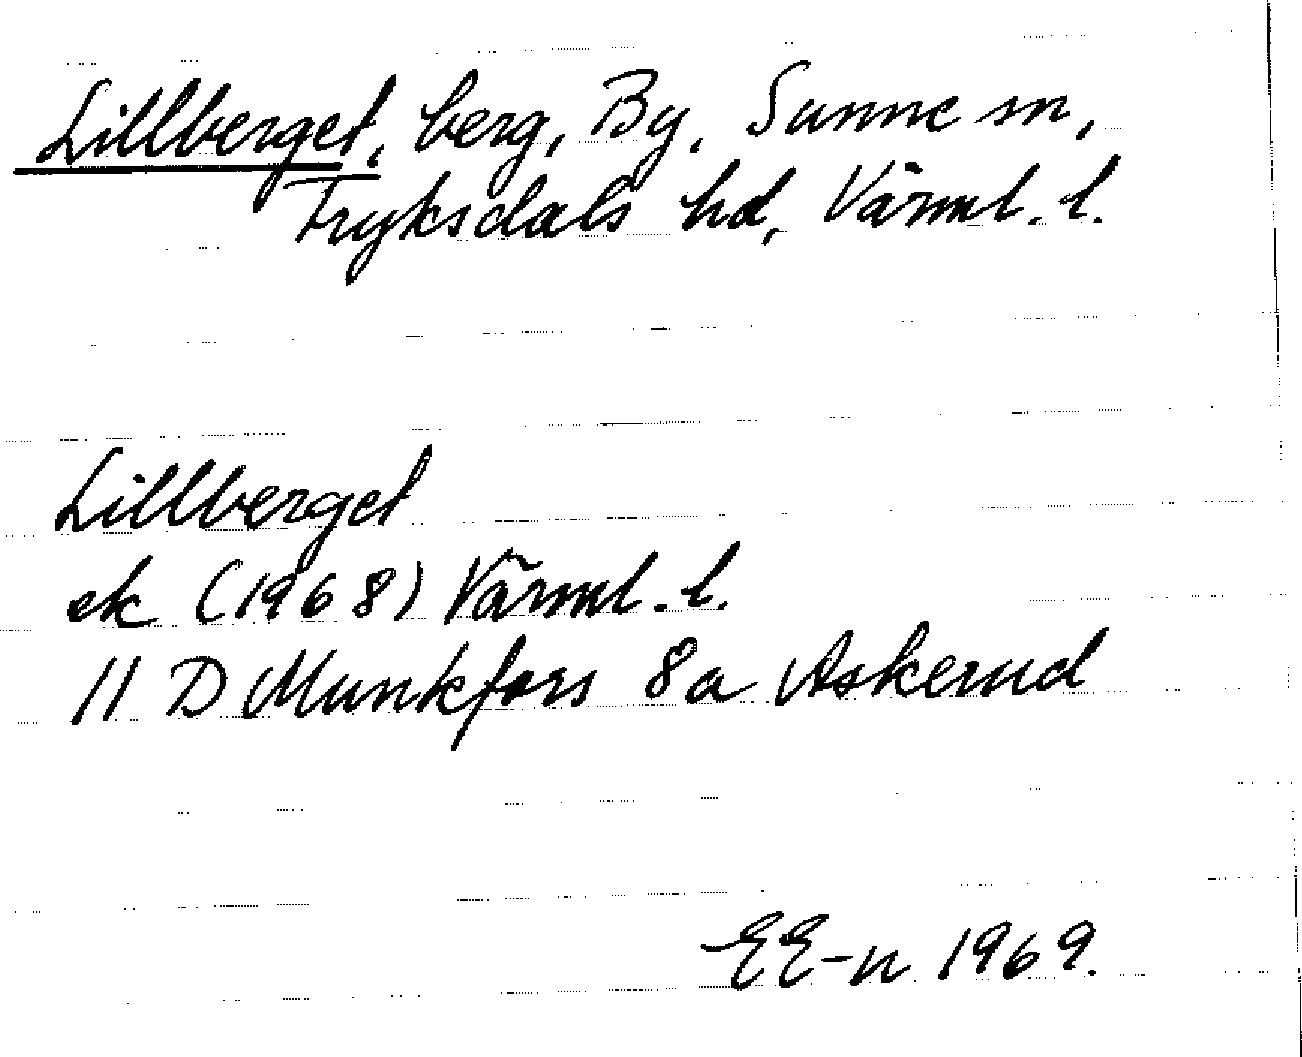 Lillberget, berg, By, Sunne sn,
Fryksdals hd, Värml. l.
Lillberget
ek (1968) Värml. l.
11 D Munkfors 8a Askerud
EE-n 1969.